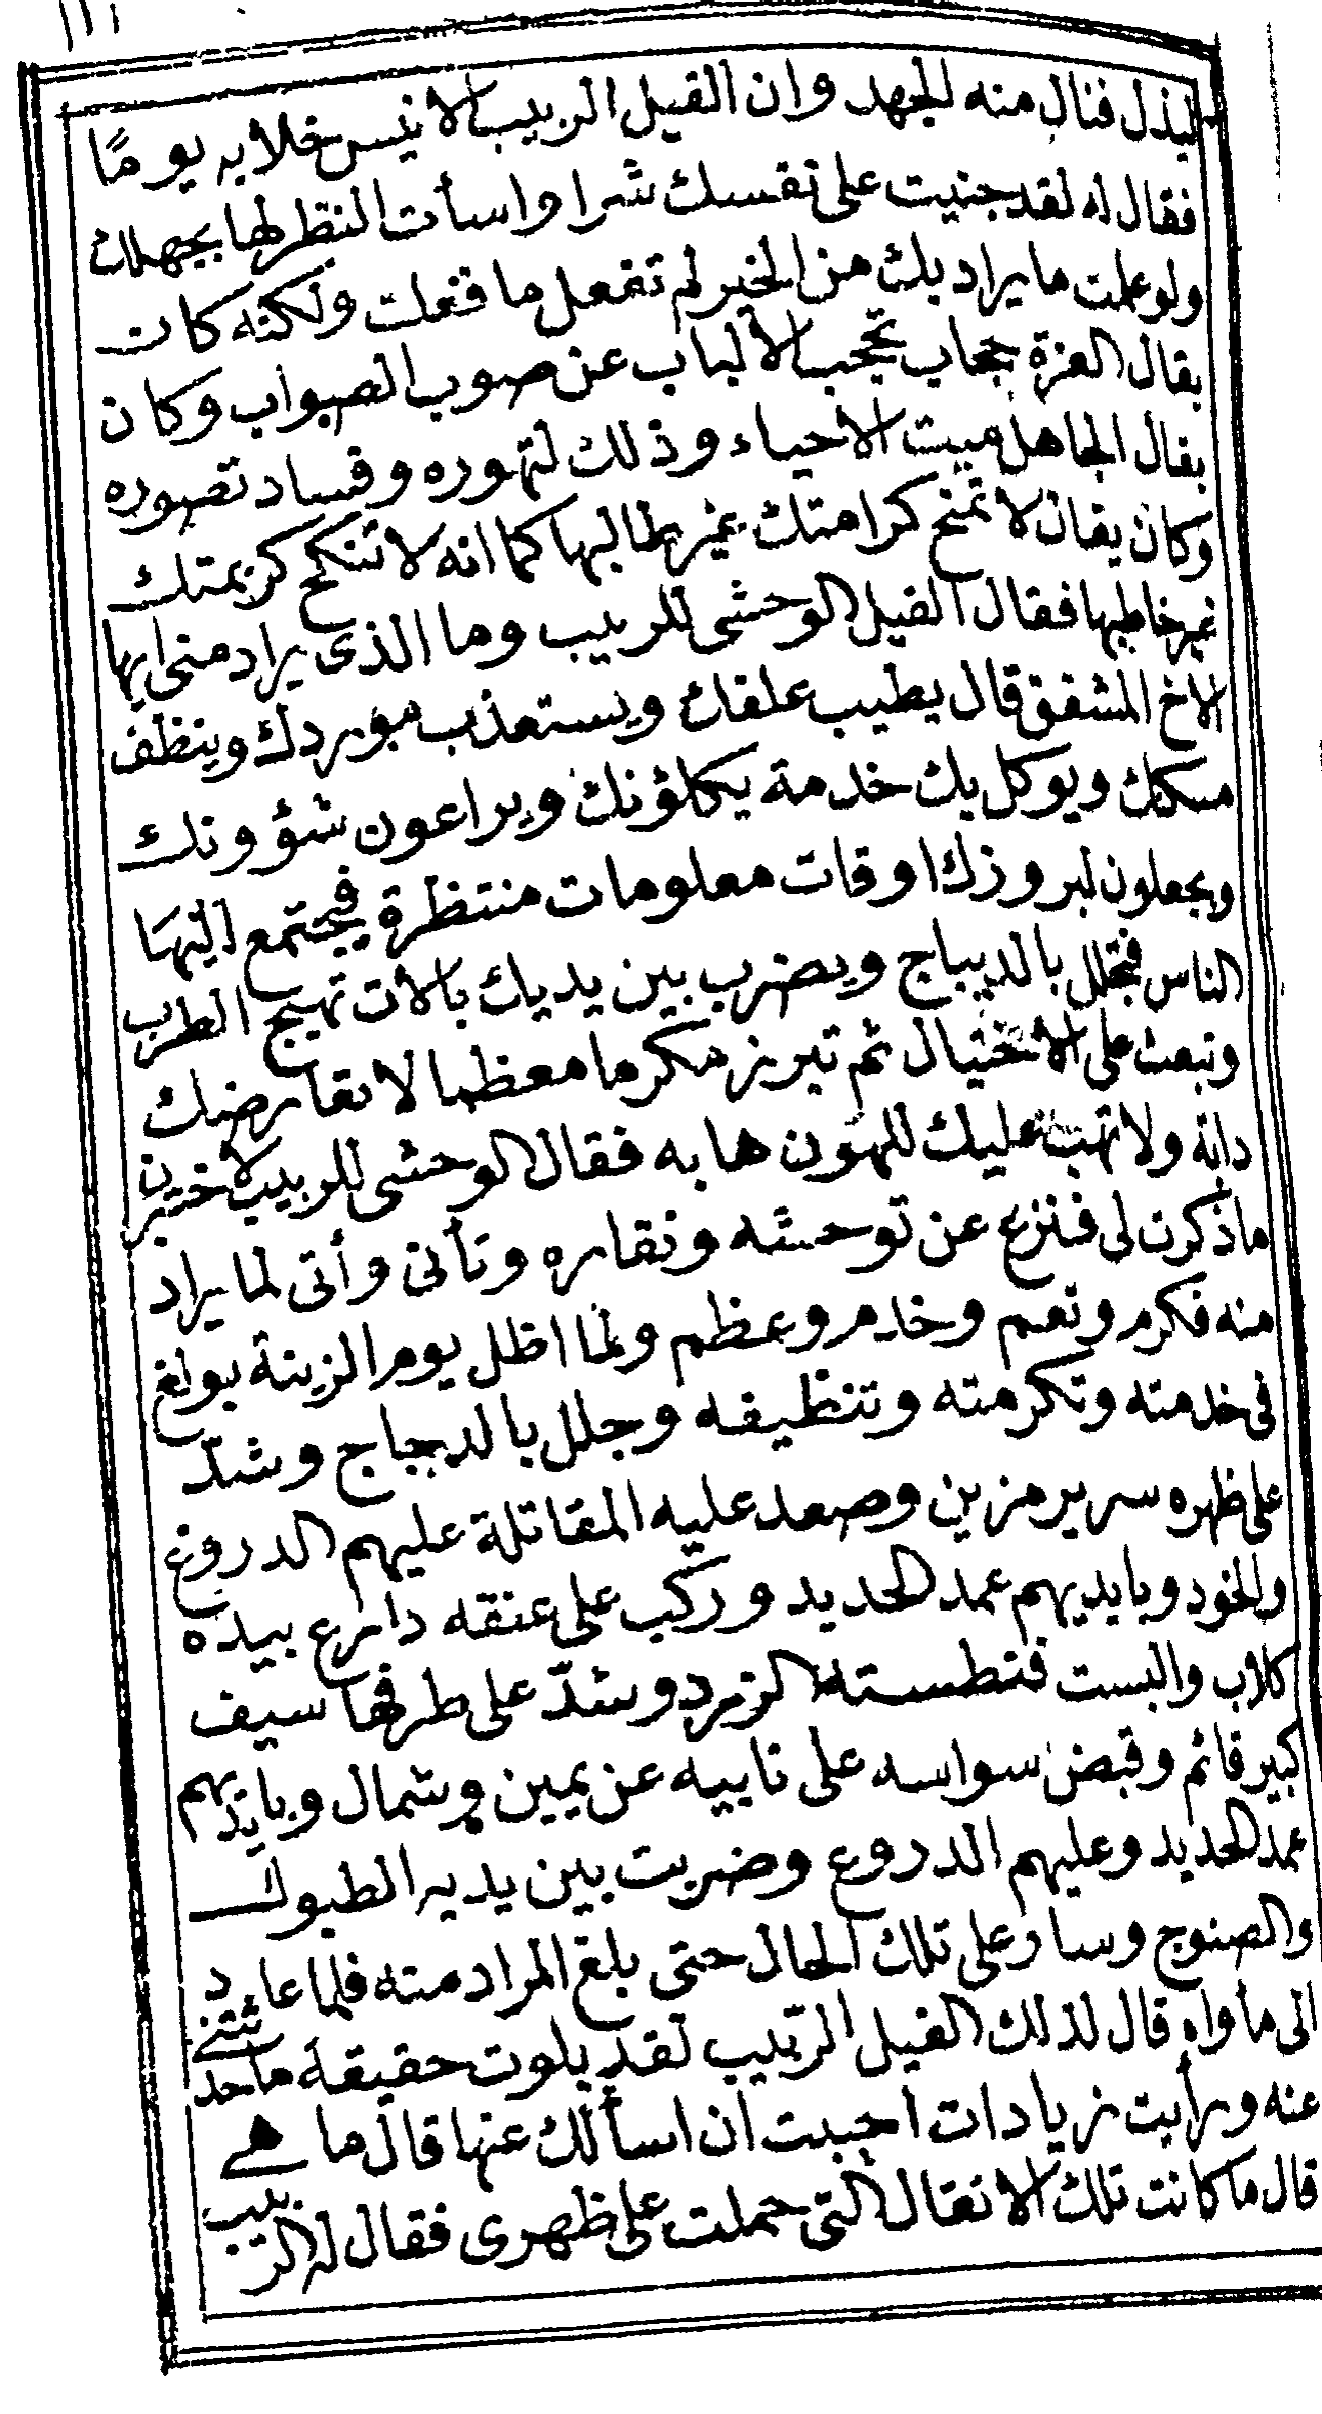 ١١١
لبذل فنال منه الجهد وان الفيل الربيب الانيس خلا به يومًا
فقال له لقد جنيت على نفسك شرا واسأت النظر لها بجهلك
ولو علمت ما يراد بك من الخير لم تفعل ما فعلت ولكنه كان
يقال العزة حجاب تحجب الالباب عن صوب الصواب وكان
يقال الجاهل ميت الاحياء وذلك لتهوره وفساد تصوره
وكان يقال لا تمنح كرامتك غير طالبها كما انه لا تنكح كريمتك
غير خاطبها فقال الفيل الوحشى للربيب وما الذى يراد منى ايها
الاخ المشفق قال يطيب علفك ويستعذب موردك وينظف
مسكنك ويوكل بك خدمة يكلؤنك ويراعون شؤونك
ويجعلون لبروزك اوقات معلومات منتظرة فيجتمع اليها
الناس فتجلل بالديباج ويضرب بين يديك بالات تهيج الطرب
وتبعث على الاختيال ثم تبرز مكرما معظما لا تعارضك
دابة ولا تهب عليك للهون هابه فقال الوحشى للربيب لاختبرن
ما ذكرت لى فنزع عن توحشه ونفاره وتأنى وأتى لما يراد
منه فكرم ونعم وخدم وعظم ولما اظل يوم الزينة بولغ
فى خدمته وتكرمته وتنظيفه وجلل بالديباج وشدّ
على ظهره سرير مزين وصعد عليه المقاتلة عليهم الدروع
والخود وبايديهم عمد الحديد وركب على عنقه دارع بيده
كلاب والبست فنطسته الزرد وشدّ على طرفها سيف
كبير قائم وقبض سواسه على نابيه عن يمين وشمال وبايديهم
عمد الحديد وعليهم الدروع وضربت بين يديه الطبول
والصنوج وسار على تلك الحال حتى بلغ المراد منه فلما عاد
الى مأواه قال لذلك الفيل الربيب لقد بلوت حقيقة ما حدثتنى
عنه ورأيت زيادات احببت ان اسألك عنها قال ما هى
قال ما كانت تلك الاثقال التى حملت على ظهرى فقال له الربيب